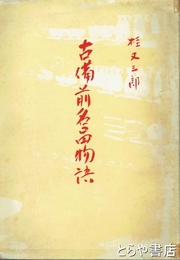 桂又三郎
古備前名品物語
とらや書店